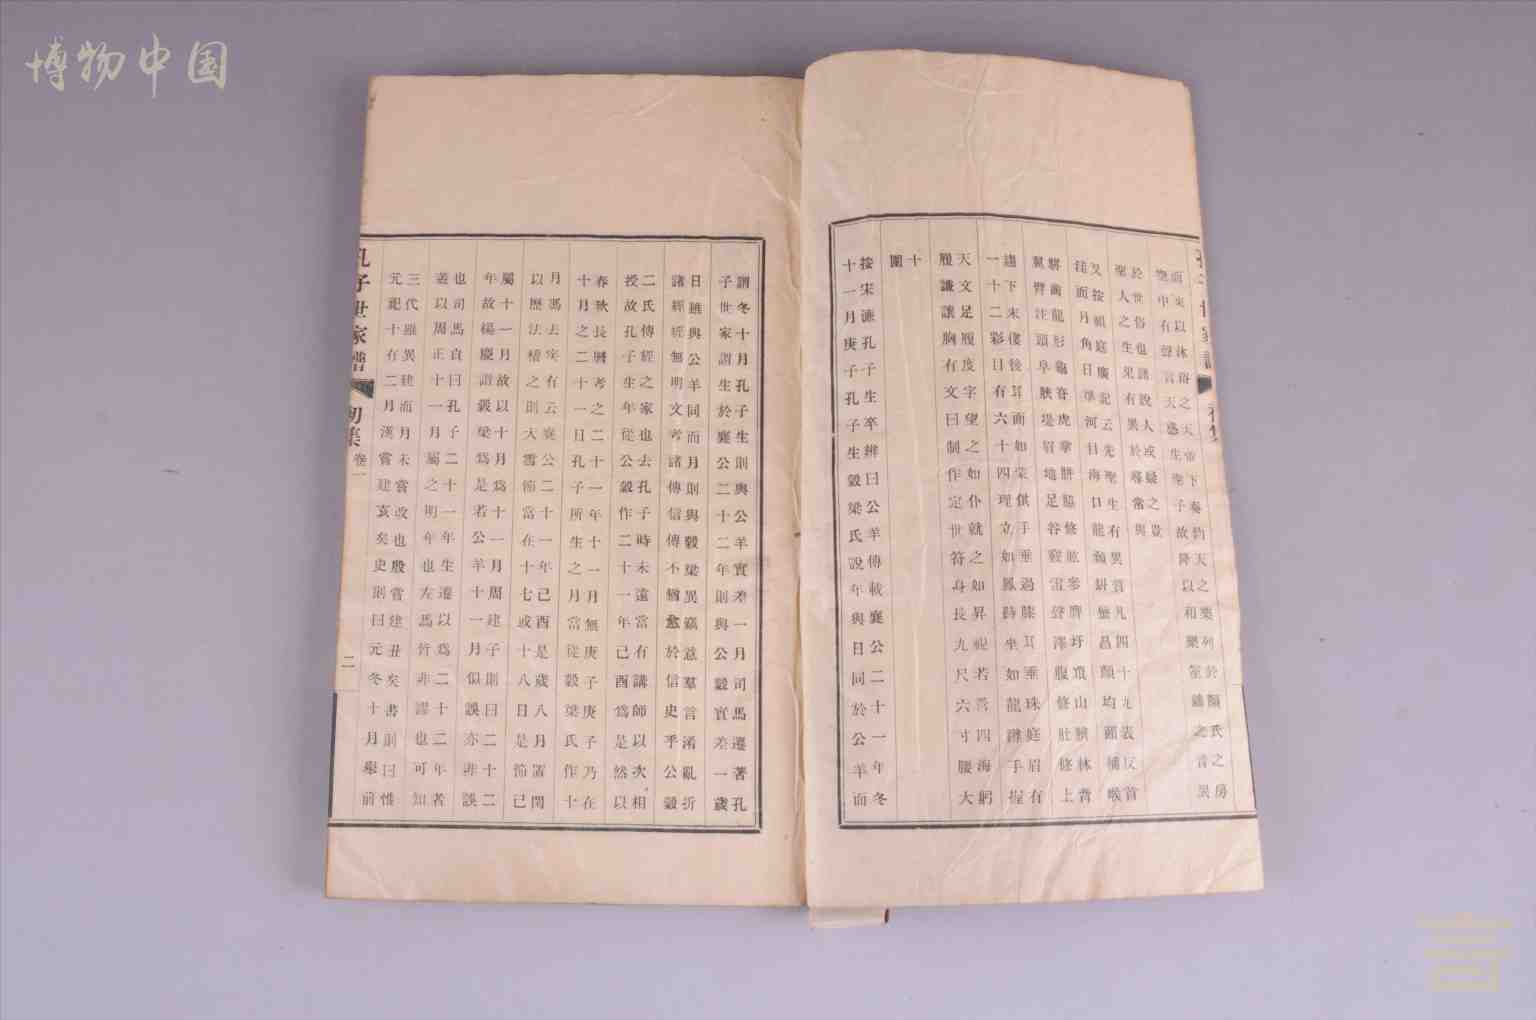 孔子世家譜
而來以沐浴之天帝下奏鈞天之樂列於顏氏之房
空中有聲言天感生聖子故降以和樂笙鏞之音異
於世俗也諸說人或疑之豈
聖人之生果有異於尋常與
又按祖庭廣記云先聖生有異質凡四十九表反首
洼面月角日準河目海口龍顙斗唇昌顏均頤輔喉
駢齒龍形龜脊虎掌胼脇修肱參膺圩頂山臍林背
翼臂注頭阜脥堤眉地足谷竅雷聲澤腹修肱修上
趨下末僂後耳面如蒙倛手垂過膝耳垂珠庭眉有
一十二彩目有六十四理立如鳳峙坐如龍蹲手握
天文足履度字望之如仆就之如昇視若營四海躬
履謙讓胸有文曰制作定世符身長九尺六寸腰大
十
圍
按宋濂孔子生卒辨曰公羊傳載襄公二十一年冬
十一月庚子孔子生穀梁氏說年與日同於公羊而
謂冬十月孔子生則與公羊實差一月司馬遷著孔
子世家謂生於襄公二十二年則與公穀實差一歲
日雖與公羊同而月則與穀梁異竊意羣言淆亂折
諸經經無明文考諸傳信傳不猶愈於信史乎公穀
二氏傳經之家也去孔子時未遠當有講師以次相
授故孔子生年從公穀作二十一年己酉為是然以
春秋長曆考之二十一年十一月無庚子庚子乃在
十月之二十一日孔子所生之月當從穀梁氏作十
月馮去疾有云襄公二十一年己酉是歲八月置閏
以歷法稽之則大雪節當在十七或十八日是節已
屬十一月故以十月為十一月周建子則曰二十二
年故楊慶謂穀梁為是若公羊十一月似誤亦非誤
也司馬貞曰孔子二十一年生遷以為二十二年者
蓋以周正十一月屬之明年也左馮皆非謬也可知
三代雖異建而月未嘗改也殷嘗建丑矣書則曰惟
元祀十有二月漢嘗建亥矣史則曰元冬十月舉前
孔子世家譜
初集
卷一
二
博物中国